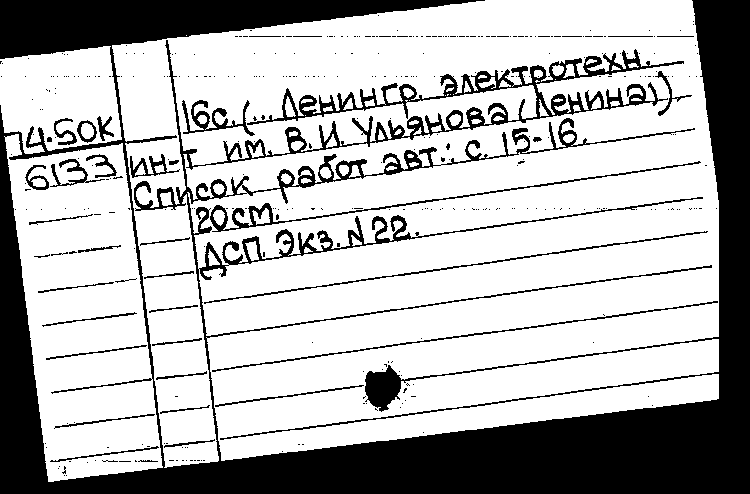 16с. (... Ленингр. электротехн.
74.50К
6133
ин-т им. В.И. Ульянова (Ленина)).
Список работ авт.: с. 15-16.
20см.
ДСП. Экз. N 22.